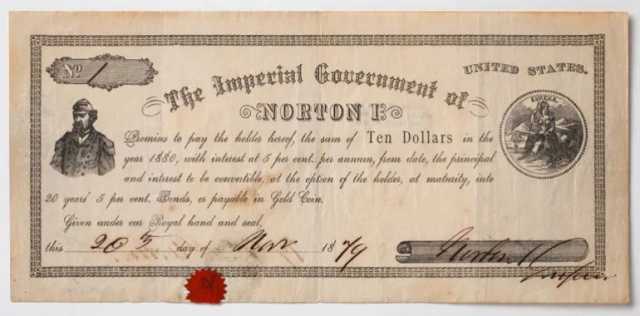 No 1
UNITED STATES.
The Imperial Government of
NORTON I.
EUREKA
Promises to pay the holder hereof, the sum of Ten Dollars in the
year 1880, with interest at 5 per cent. per annum, from date, the principal
and interest to be convertible, at the option of the holder, at maturity, into
20 years' 5 per cent. Bonds, or payable in Gold Coin.
Given under our Royal hand and seal,
this day of Nov 1879
Norton I